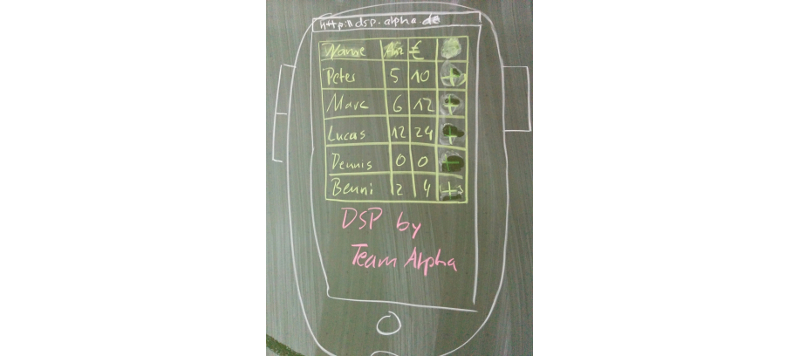 http://dsp.alpha.de
Name Anz €
Peter 5 10 +
Marc 6 12 +
Lucas 12 24 +
Dennis 0 0 +
Benni 2 4 +
DSP by
Team Alpha